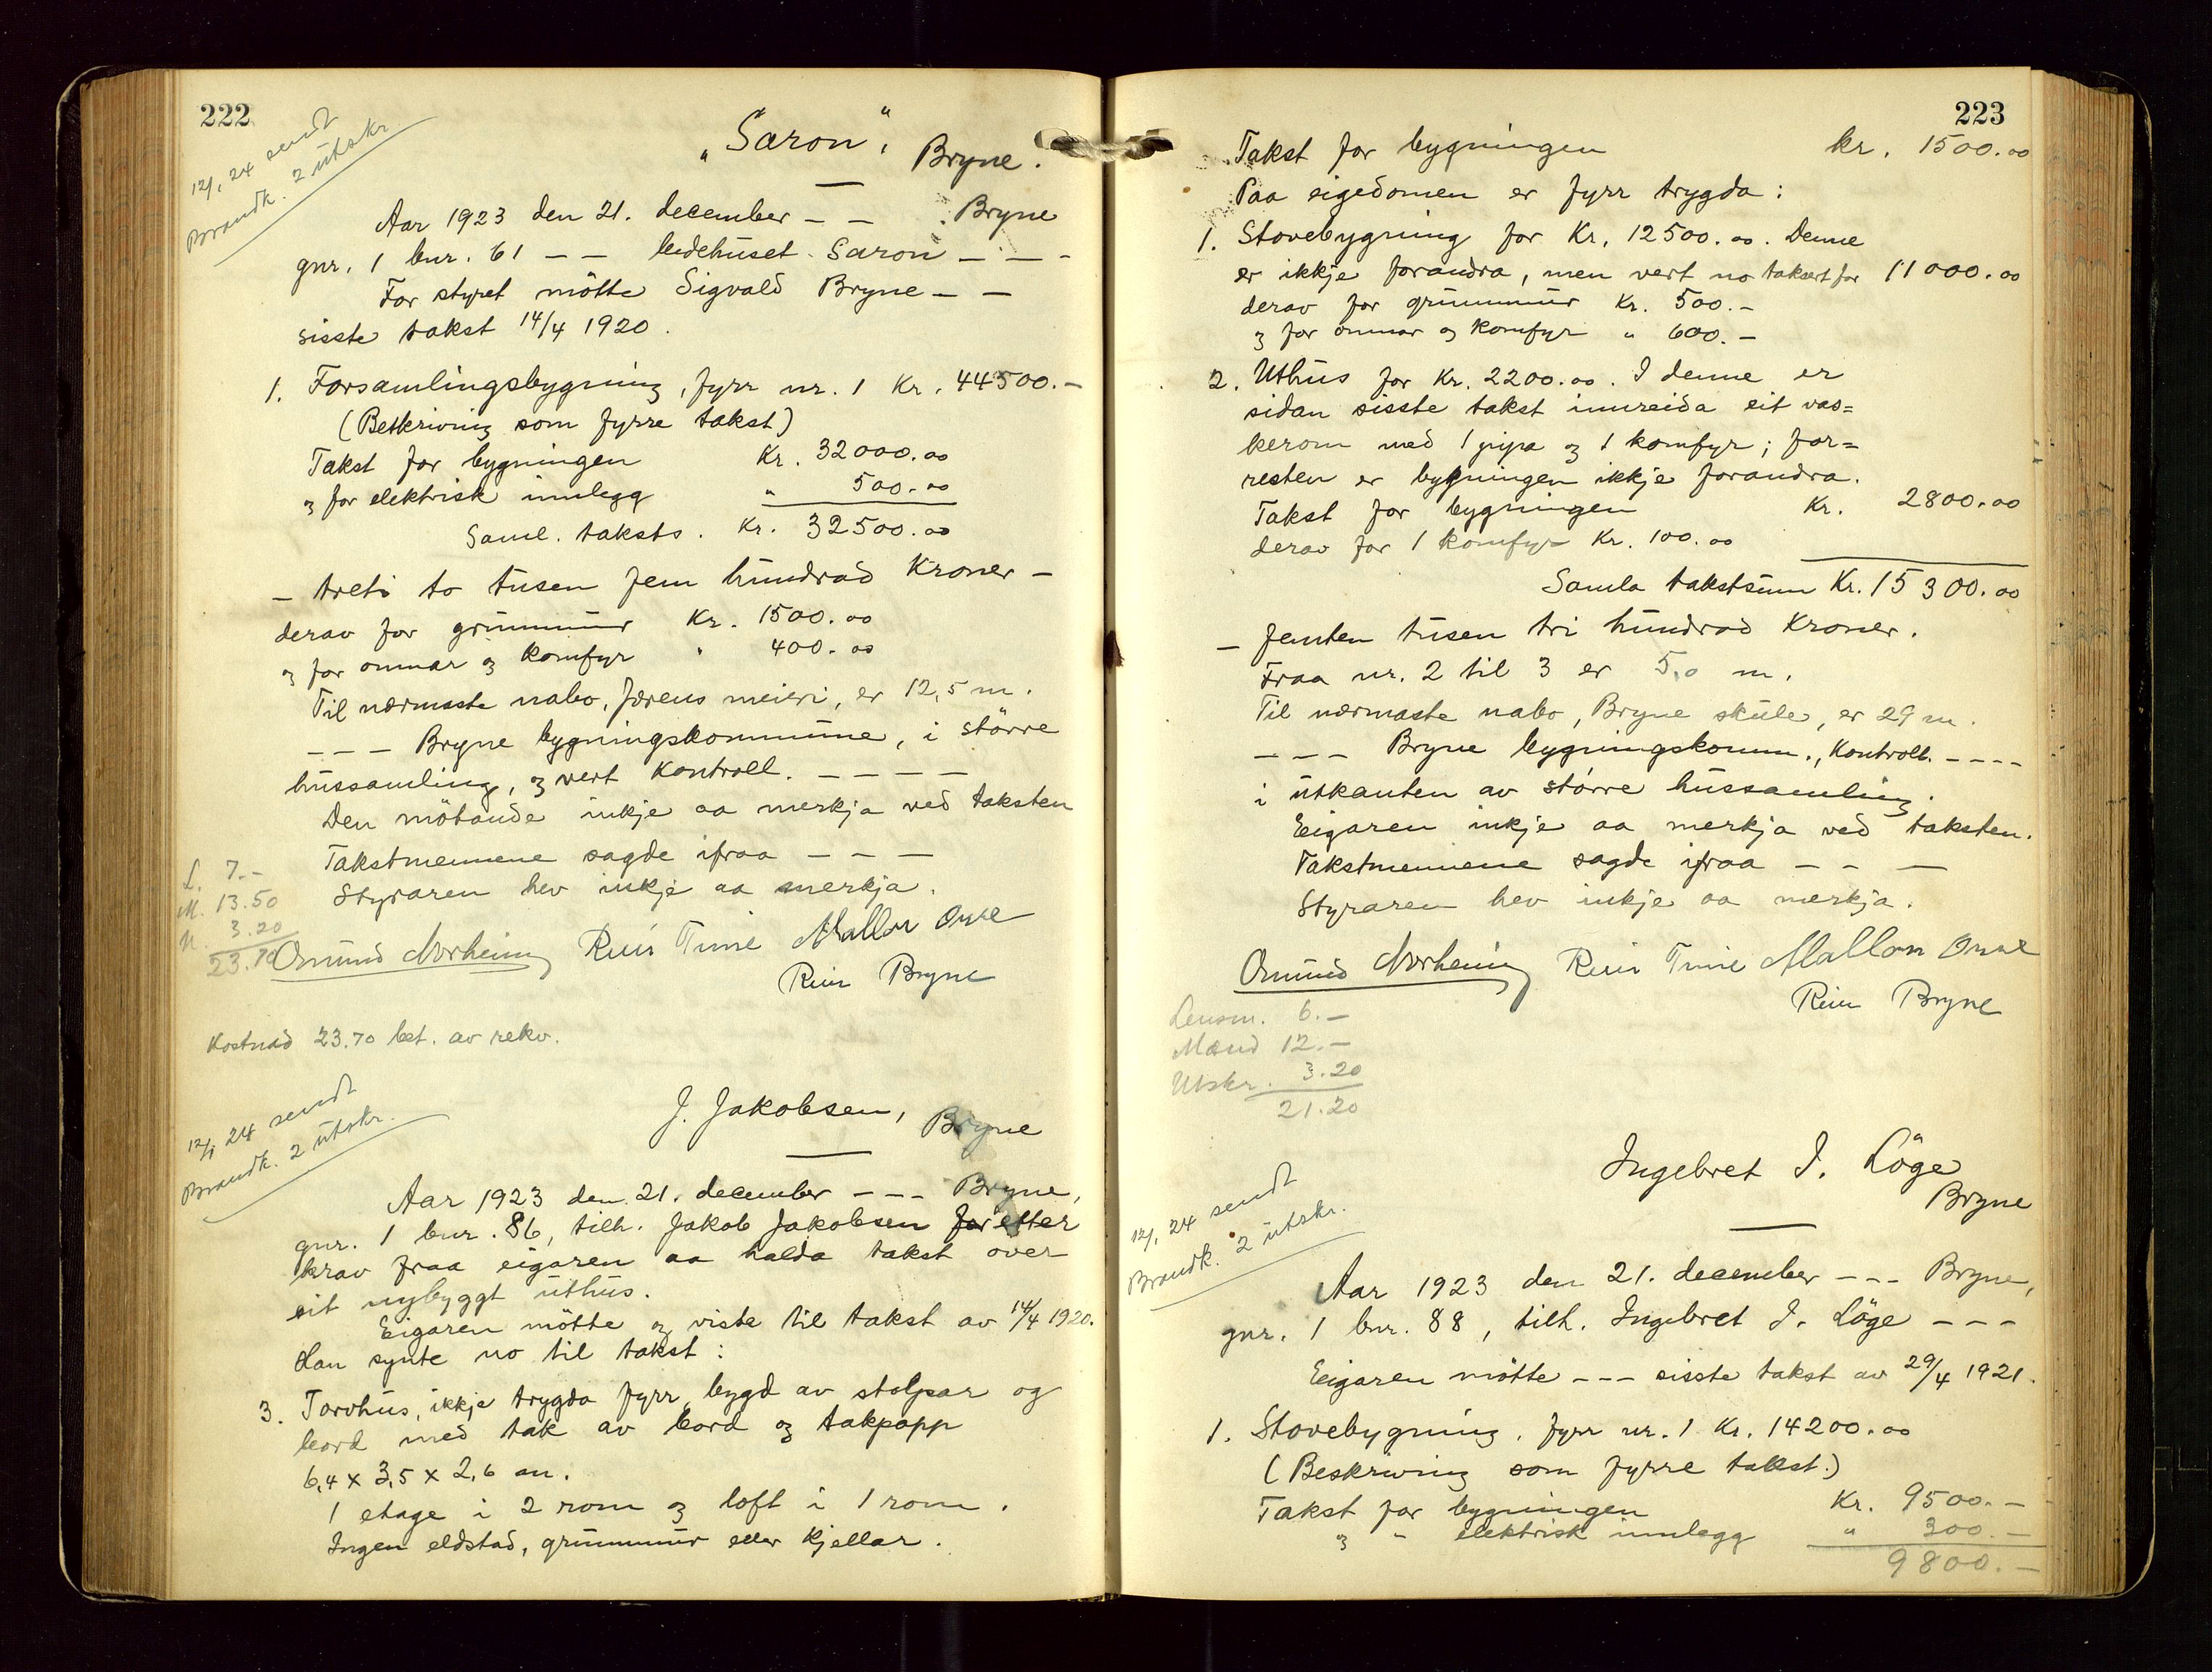 222
12/1 24 sendt
Brandk. 2 utskr.
„Saron“,
Bryne.
Aar 1923 den 21. december – – Bryne
gnr. 1 bnr. 61 – – bedehuset Saron – – –
For styret mötte Sigvald Bryne – –
sisste takst 14/4 1920.
1. Forsamlingsbygning, fyrr nr. 1 Kr. 44500.–
(Beskrivning som fyrre takst)
Takst for bygningen Kr. 32000.00
og for elektrisk innlegg " 500.00
Saml. taksts. Kr. 32500.00
– treti to tusen fem hundrad Kroner –
derav for grunnmur Kr. 1500.00
og for omnar og komfyr " 400.00
Til nærmaste nabo, Jærens meieri, er 12,5 m.
– – – Bryne bygningskommune, i större
hussamling, og vert Kontroll. – – – –
Den mötande inkje aa merkja ved taksten
Takstmennene sagde ifraa – – –
Styraren hev inkje aa merkja.
L. 7.–
M. 13.50
U. 3.20
23.70
Omund Norheim Reier Time Mallon Orre
Reier Bryne
Kostnad 23.70 bet. av rekv.
12/1 24 sendt
Brandk. 2 utskr.
J. Jakobsen,
Bryne
Aar 1923 den 21. december – – – Bryne,
gnr. 1 bnr. 86, tilh. Jakob Jakobsen for etter
krav fraa eigaren aa halda takst over
eit nybyggt uthus.
Eigaren mötte og viste til takst av 14/4 1920.
Han synte no til takst:
3. Torvhus, ikkje trygda fyrr, bygd av stolpar og
bord med tak av bord og takpapp
6,4 x 3,5 x 2,6 m.
1 etage i 2 rom og loft i 1 rom.
Ingen eldstad, grunnmur eller kjellar.
223
Takst for bygningen kr. 1500.00
Paa eigedomen er fyrr trygda:
1. Stovebygning for Kr. 12500.00. Denne
er ikkje forandra, men vert no taksert for 11000.00
derav for grunnmur Kr. 500.–
og for omnar og komfyr " 600.–
2. Uthus for Kr. 2200.00. I denne er
sidan sisste takst innreida eit vas=
kerom med 1 pipa og 1 komfyr; for=
resten er bygningen ikkje forandra.
Takst for bygningen Kr. 2800.00
derav for 1 komfyr Kr. 100.00
Samla takstsum Kr. 15300.00
– femten tusen tri hundrad Kroner.
Fraa nr. 2 til 3 er 5,0 m.
Til nærmaste nabo, Bryne skule, er 29 m.
– – – Bryne bygningskomm., Kontroll. – – – –
i utkanten av större hussamling.
Eigaren inkje aa merkja ved taksten.
Takstmennene sagde ifraa – – –
Styraren hev inkje aa merkja.
Omund Norheim Reier Time Mallon Orre
Reier Bryne
Lensm. 6.–
Mænd 12.–
Utskr. 3.20
21.20
Ingebret I. Löge
Bryne
12/1 24 sendt
Brandk. 2 utskr.
Aar 1923 den 21. december – – – Bryne,
gnr. 1 bnr. 88, tilh. Ingebret I. Löge – – –
Eigaren mötte – – – sisste takst av 29/4 1921.
1. Stovebygning, fyrr nr. 1 Kr. 14200.00
(Beskrivning som fyrre takst.)
Takst for bygningen Kr. 9500.–
og " elektrisk innlegg " 300.–
9800.–